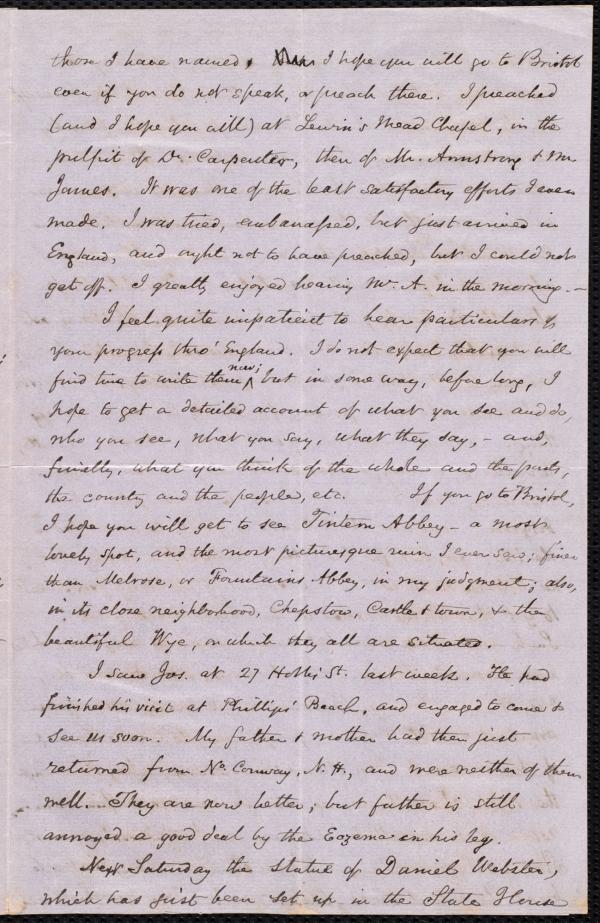 those I have named. I hope you will go to Bristol
even if you do not speak, or preach there. I preached
(and I hope you will) at Lewin's Mead Chapel, in the
pulpit of Dr. Carpenter, then of Mr. Armstrong & Mr
James. It was one of the least satisfactory efforts I ever
made. I was tired, embarrassed, but just arrived in
England, and ought not to have preached, but I could not
get off. I greatly enjoyed hearing Mr. A. in the morning. –
I feel quite impatient to hear particulars of
your progress thro' England. I do not expect that you will
find time to write them now; but in some way, before long, I
hope to get a detailed account of what you see and do,
who you see, what you say, what they say, – and,
finally, what you think of the whole and the parts,
the country and the people, etc. If you go to Bristol,
I hope you will get to see Tintern Abbey – a most
lovely spot, and the most picturesque ruin I ever saw; finer
than Melrose, or Fountains Abbey, in my judgment; also,
in its close neighborhood, Chepstow, Castle & town, & the
beautiful Wye, on which they all are situated.
I saw Jos. at 27 Hollis St. last week. He had
finished his visit at Phillips' Beach, and engaged to come &
see us soon. My father & mother had then just
returned from No. Conway, N.H., and were neither of them
well. They are now better; but father is still
annoyed a good deal by the Eczema in his leg.
Next Saturday the statue of Daniel Webster,
which has just been set up in the State House